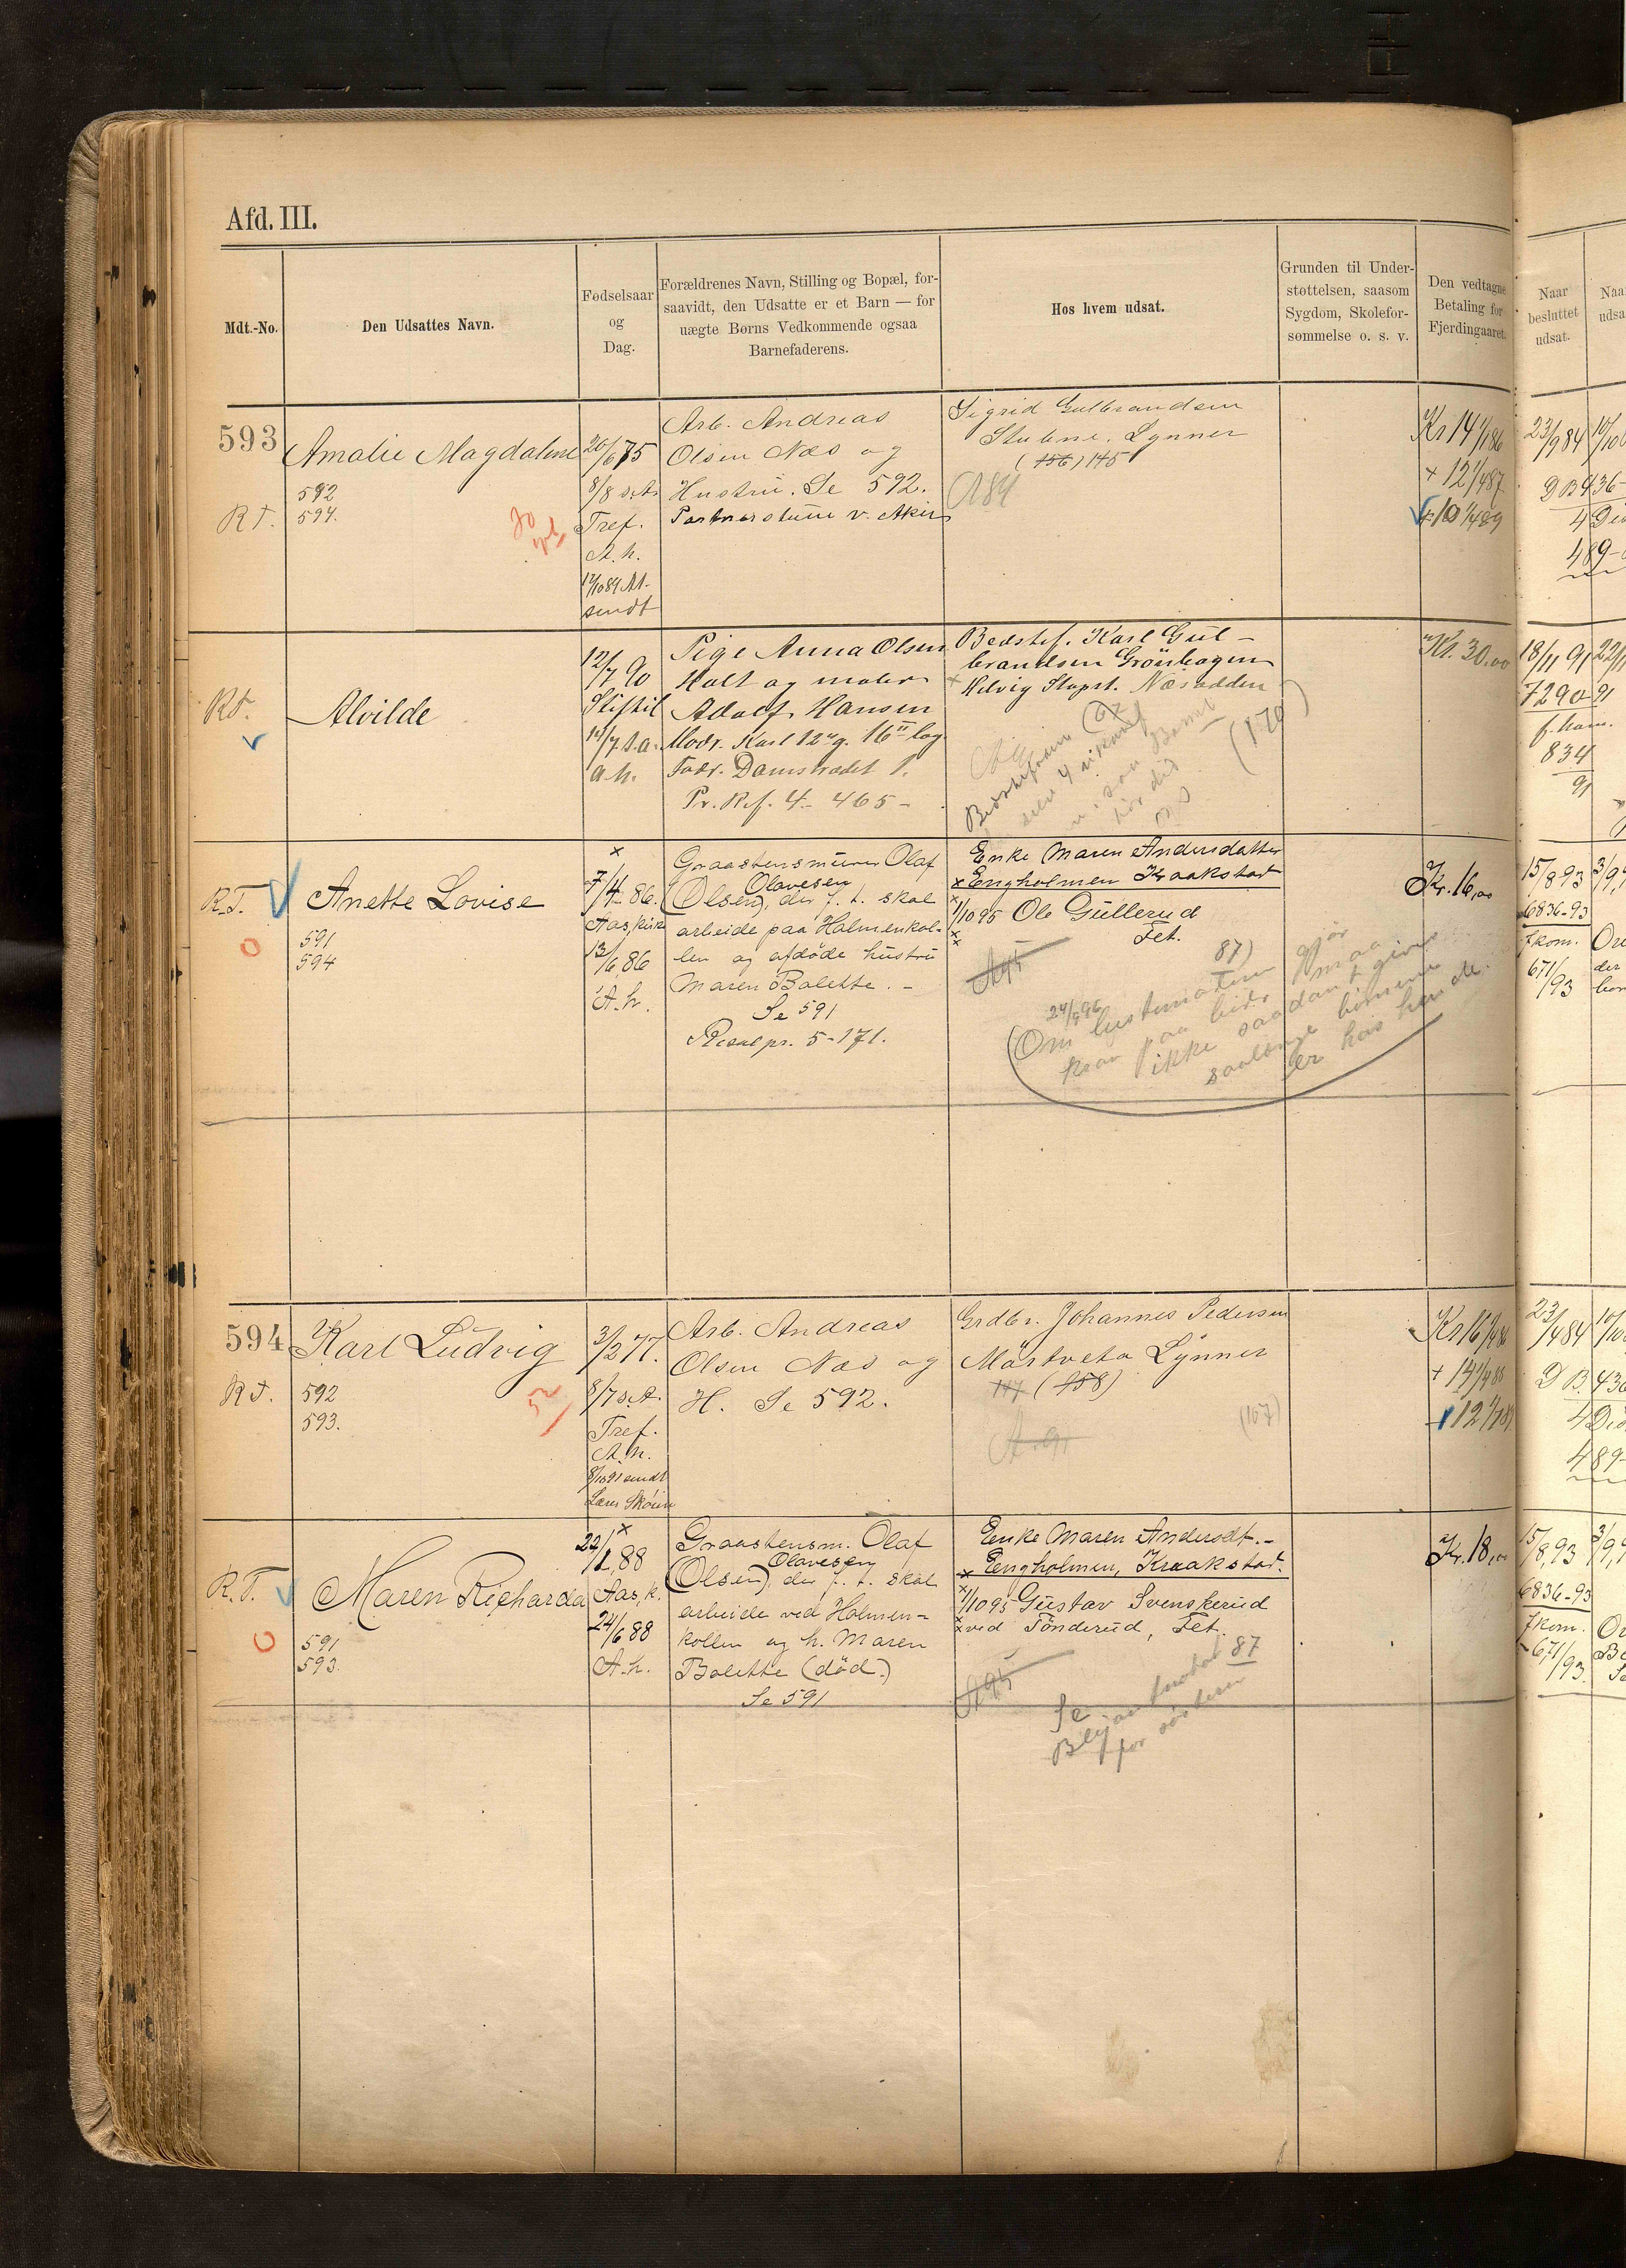 Afd. III.
Mdt.-No.
Den Udsattes Navn.
Fødselsaar
og
Dag.
Forældrenes Navn, Stilling og Bopæl, for-
saavidt, den Udsatte er et Barn — for
uægte Børns Vedkommende ogsaa
Barnefaderens.
Hos hvem udsat.
Grunden til Under-
støttelsen, saasom
Sygdom, Skolefor-
sømmelse o. s. v.
Den vedtagne
Betaling for
Fjerdingaaret.
Naar
besluttet
udsat.
Naa
udsa
593
Amalie Magdalene
592
594.
R T.
20/6 75
8/8 s. A.
Tref.
A. h.
sendt
Arb. Andreas
Olsen Næs og
Hustru. Se 592.
v. Aker
Sigrid Gulbrandsen
Stubene. Lynner
(156) 145
A84
Kr 14 1/1 86
+ 12 1/4 87
+ 10 1/4 89
23/9 84
D B 436-
4 Di
489-
R T.
Alvilde
12/7 90
A. h.
Pige Anna Olsen
Holt og maler
Adolf Hansen
Modr. Karl 12s g. 16 II bag
Fadr. Damstrædet 1.
Pr. Rf. 4 - 465 -
Bedstef. Karl Gul-
brandsen Grönhagen
Helvig Stapst. Næsodden
(170)
Kr. 30.00
18/11 91
7290-91
f. kom.
834
91
R. T.
Anette Lovise
591
594
7/4 86.
Aas, kirk
13/6 86
A. h.
Graastensmurer Olaf
Olavesen
(Olsen), der f. t. skal
arbeide paa Holmenkol-
len og afdöde hustru
Maren Bolette. -
Se 591
Resolpr. 5-171.
Enke Maren Andersdatter
x Engholmen Kraakstad
1/10 95 Ole Gullerud
Fet.
A95
87)
ikke saadant give
saalænge börnene
er hos hende.
Kr. 16,00
15/8 93
6836-93
f kom.
671/93
594
Karl Ludvig
592
593.
R T.
52
3/2 77.
8/7 s. A.
Tref.
A. h.
8/10 91 sendt
Arb. Andreas
Olsen Næs og
H. Se 592.
Grdbr. Johannes Pedersen
Mörtveta Lynner
147 (158)
(107)
A 91
Kr 16 1/1 86
+ 14 1/4 88
+ 12 1/1 89
23/9 84
D B. 436
4 Di
489-
R. T.
Maren Richarda
591
593.
22/1 88
Aas, k.
24/6 88
A. h.
Graastensm. Olaf
Olavesen
(Olsen), der f. t. skal
arbeide ved Holmen-
kollen og h. Maren
Bolette (död.)
Se 591
Enke Maren Andersdt. -
x Engholmen, Kraakstad.
1/10 95 Gustav Svenskerud
ved Tönderud, Fet.
A95
Se
87
for sösteren
Kr. 18,00
15/8 93
6836-93
f kom.
671/93.